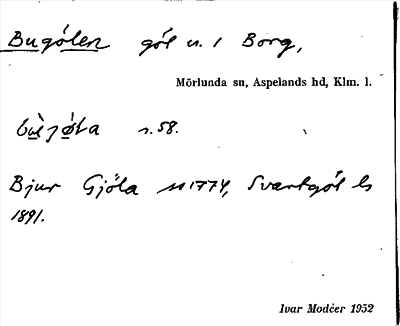 Bugölen göl u. 1 Borg,
Mörlunda sn, Aspelands hd, Klm. l.
s. 58.
Bjur Gjöla 1774, Svartgöl
1891.
Ivar Modéer 1952